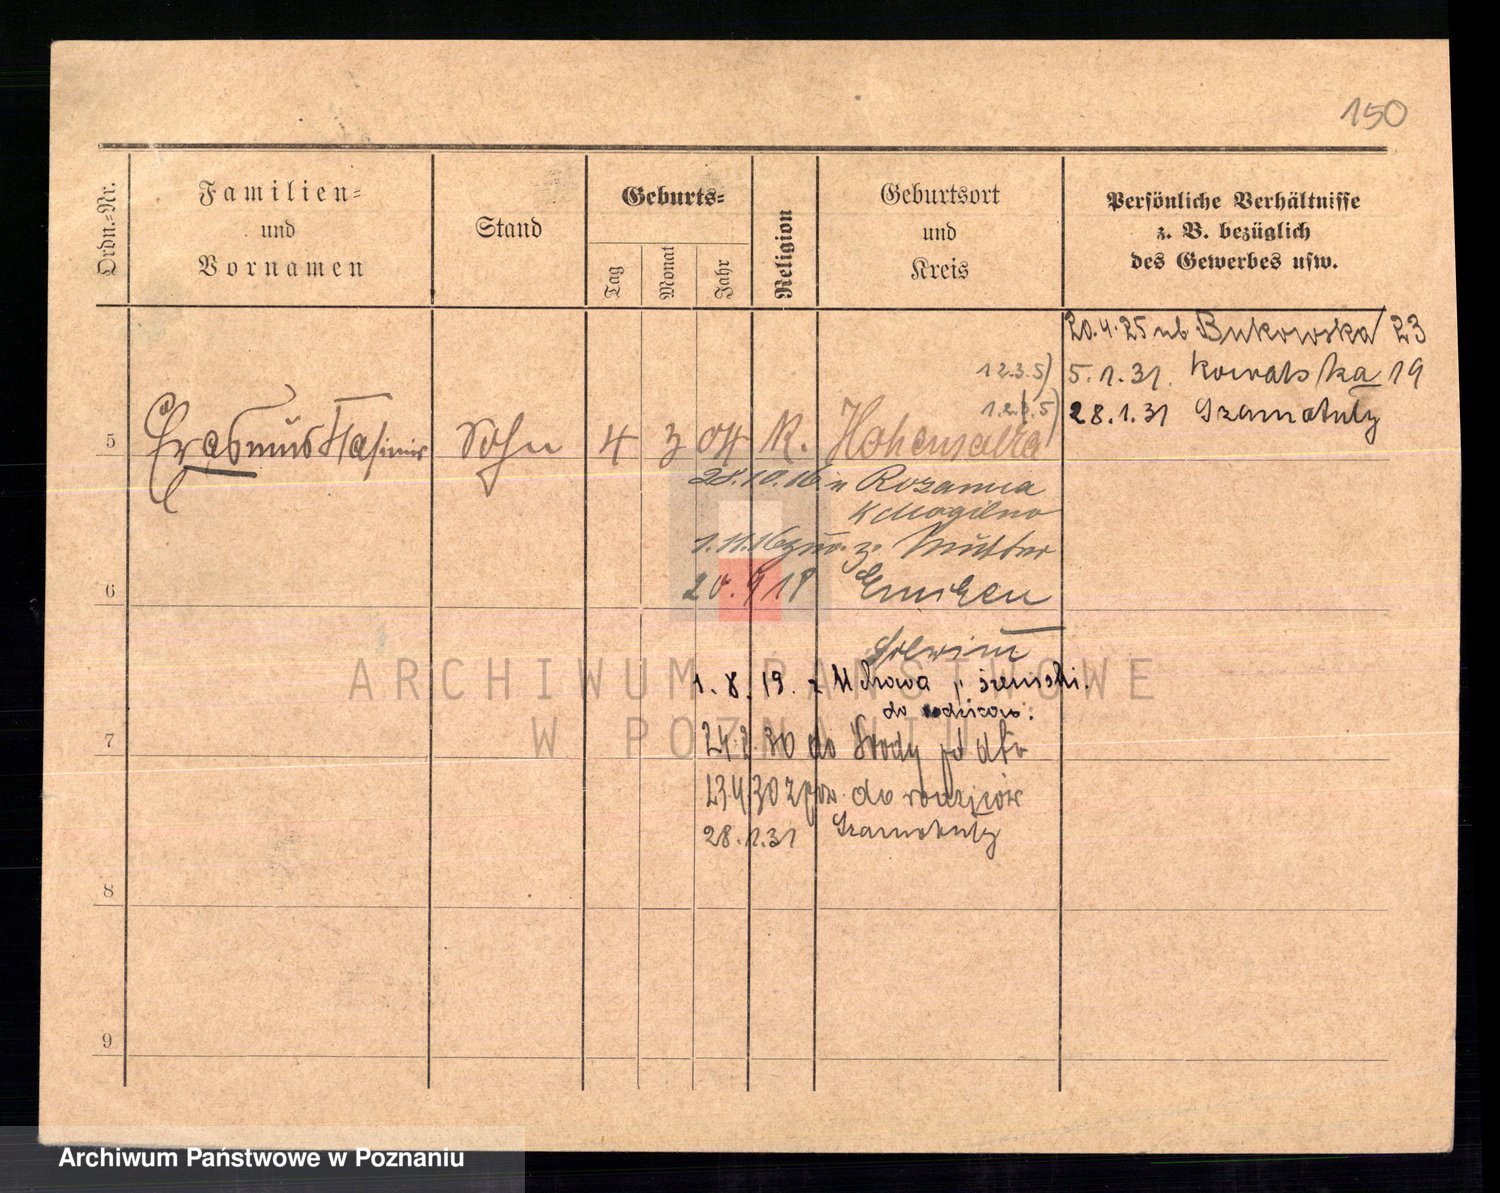 150
Ordn.-Nr.
Familien-
und
Vornamen
Stand
Geburts-
Tag
Monat
Jahr
Religion
Geburtsort
und
Kreis
Persönliche Verhältnisse
z. B. bezüglich
des Gewerbes usw.
20.4.25 ub Bukowska 23
1 2.3.5) 5.1.31. Kowalska 19
28.1.31 Szamotuły
5 Erasmus Kasimir Sohn 4 3 04 K. Hohensalza
28.10.16. n Rozanna
K Mogilno
1.11.16 zur. z. Mutter
6 20.9.18
Schwim
1.8.19. z
do rodziców.
7 24.2.30 do Środy
23.4.30 z pow. do rodziców
28.1.31 Szamotuły
8
9
ARCHIWUM PAŃSTWOWE
W POZNANIU
Archiwum Państwowe w Poznaniu